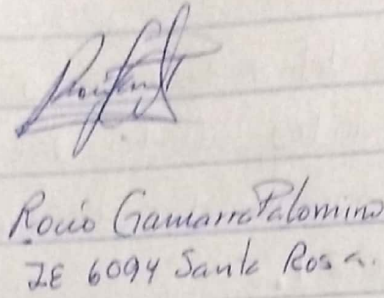 Rocio Gamarra Palomino
IE 6094 Santa Rosa.